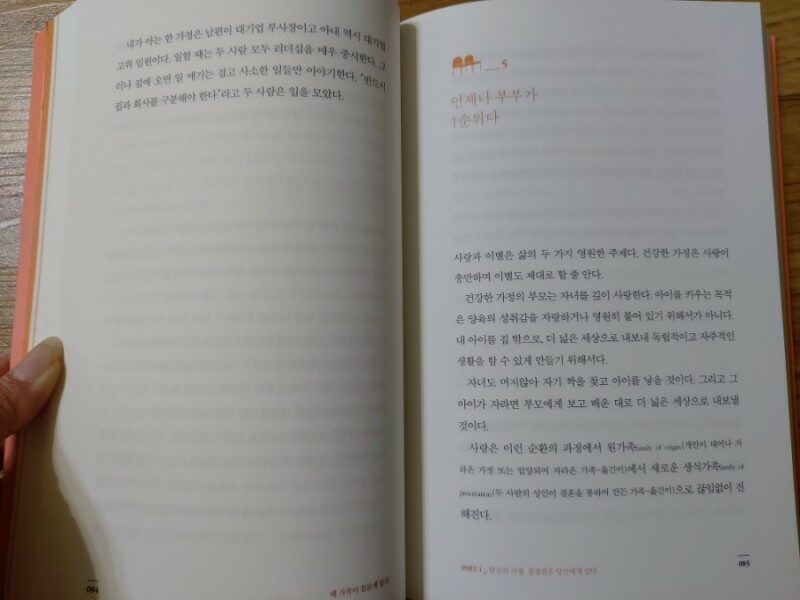 내가 아는 한 가정은 남편이 대기업 부사장이고 아내 역시 대기업
고위 임원이다. 일할 때는 두 사람 모두 리더십을 매우 중시한다. 그
러나 집에 오면 일 얘기는 접고 사소한 일들만 이야기한다. “반드시
집과 회사를 구분해야 한다”라고 두 사람은 입을 모았다.
084
왜 가족이 힘들게 할까
5
언제나 부부가
1순위다
사랑과 이별은 삶의 두 가지 영원한 주제다. 건강한 가정은 사랑이
충만하며 이별도 제대로 할 줄 안다.
건강한 가정의 부모는 자녀를 깊이 사랑한다. 아이를 키우는 목적
은 양육의 성취감을 자랑하거나 영원히 붙어 있기 위해서가 아니다.
내 아이를 집 밖으로, 더 넓은 세상으로 내보내 독립적이고 자주적인
생활을 할 수 있게 만들기 위해서다.
자녀도 머지않아 자기 짝을 찾고 아이를 낳을 것이다. 그리고 그
아이가 자라면 부모에게 보고 배운 대로 더 넓은 세상으로 내보낼
것이다.
사랑은 이런 순환의 과정에서 원가족family of origin(개인이 태어나 자
라온 가정 또는 입양되어 자라온 가족-옮긴이)에서 새로운 생식가족family of
procreation(두 사람의 성인이 결혼을 통하여 만든 가족-옮긴이)으로 끊임없이 전
해진다.
PART 1 _ 당신의 가정, 결정권은 당신에게 있다
085